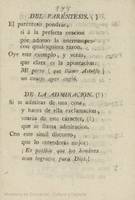 (9)
DEL PARÉNTESIS. ( )
El paréntesis pondrás,
si á la perfecta oracion
por adorno la interrumpes
con qualesquiera razon.
Oye este exemplo, y verás,
que clara es la apuntacion:
Mi perro ( que llamo
un
DE LA ADMIRACION. (!)
Si te admiras de una cosa,
y haces de ella exclamacion,
usarás de ese carácter, (!)
que se llama admiracion.
Con este símil discreto,
que lo entenderás mejor:
¡Es posible que los hombres
sean ingratos para Dios!